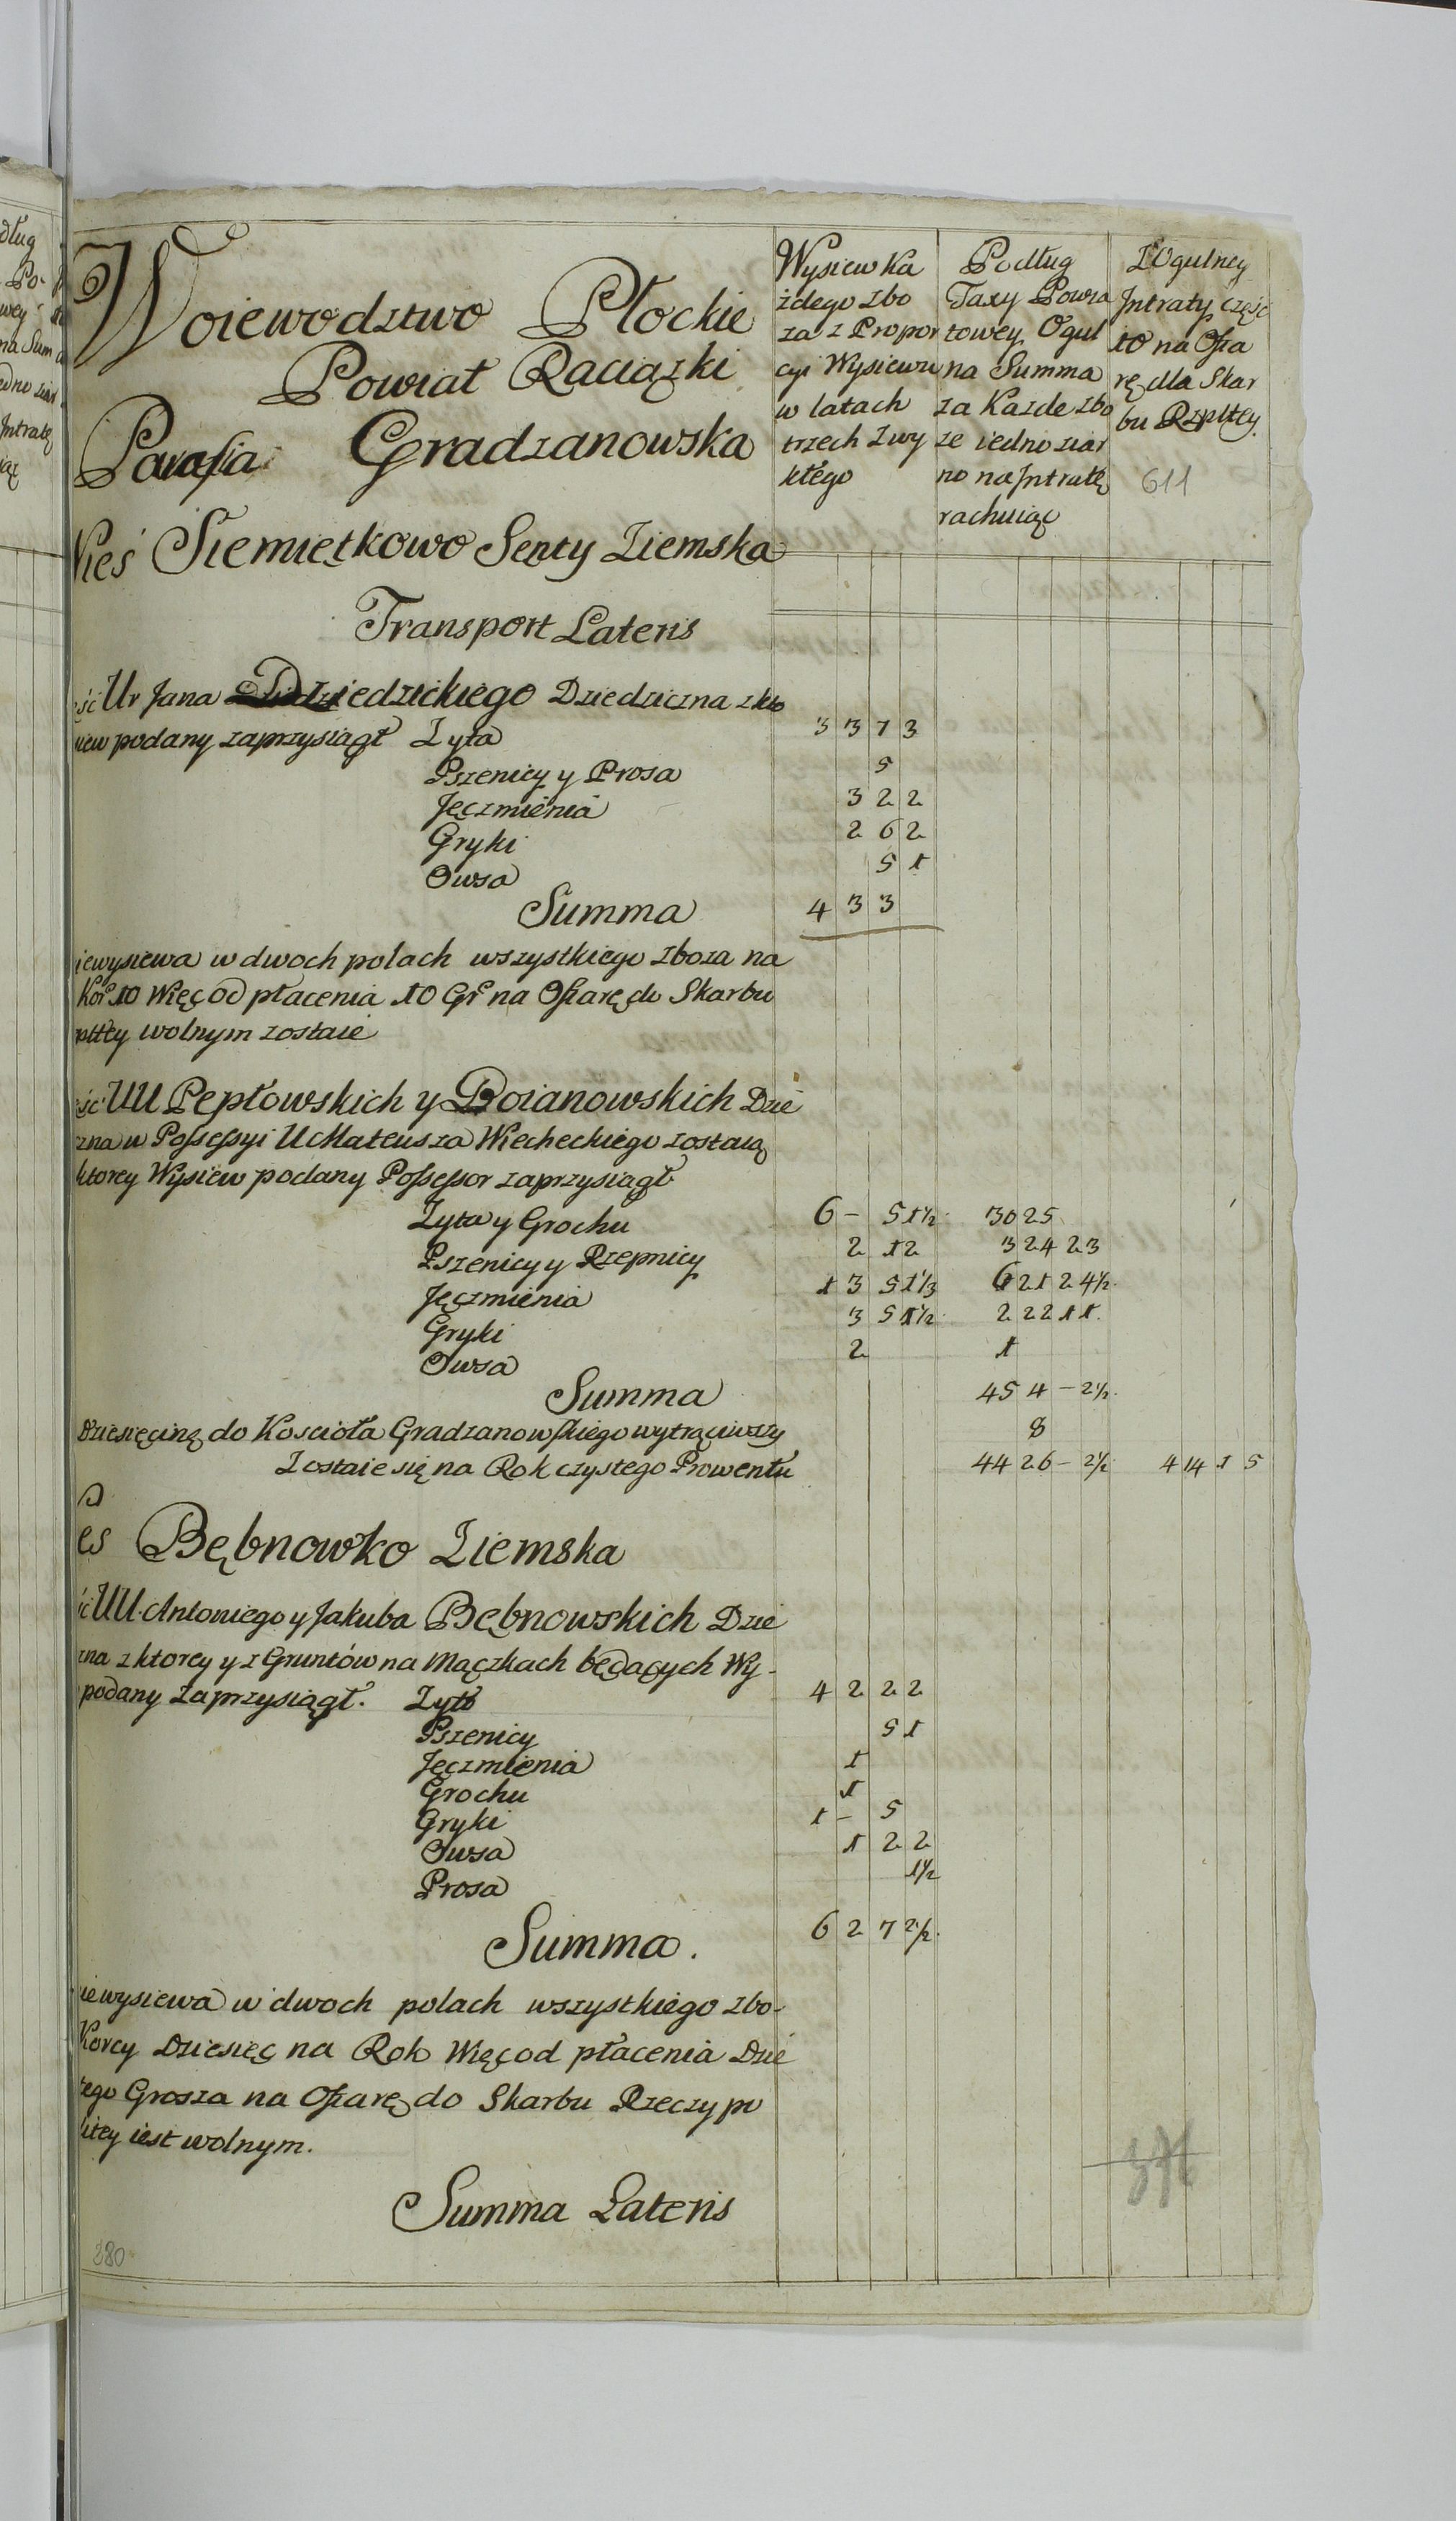 Woiewodztwo Płockie
Powiat Raciązki
Parafia Gradzanowska
Wysiew Ka
żdego zbo
za z Propor
cyi Wysiewu
w latach
trzech zwy
kłego
Podług
Taxy Powia
towey Ogul
na Summa
za Kazde zbo
ze iedno ziar
no na Jntratę
rachuiąc
Z Ogulney
Jntraty częśc
10 na Ofia
rę dla Skar
bu Rzpltey.
611
Wieś Siemiętkowo Senty Ziemska
Transport Lateris
ść Ur Jana Dziedzickiego Dziedziczna z kto
siew podany zaprzysiągł Zyta 3 3 7 3
Pszenicy y Prosa 5
Jęczmienia 3 2 2
Gryki 2 6 2
Owsa 5 1
Summa 4 3 3
iewysiewa w dwoch polach wszystkiego zboza na
Kor 10 Więc od płacenia 10 Gr na Ofiarę do Skarbu
pltty wolnym zostaie
ść UU Pepłowskich y Boianowskich Dzie
czna w Possessyi U Mateusza Wiecheckiego zostaią
ktorey Wysiew podany Possessor zaprzysiągł
Zyta y Grochu 6 - 5 1½ 30 25
Pszenicy y Rzepnicy 2 1 2 32 4 23
Jęczmienia 1 3 5 1⅓ 62 1 2 4½
Gryki 3 5 1½ 22 2 1 1
Owsa 2 1
Summa 45 4 - 2½
Dziesięcinę do Koscioła Gradzanowskiego wytrąciwszy 8
Zostaie się na Rok czystego Prowentu 44 26 - 2½ 4 14 1 5
es Bębnowko Ziemska
ć UU. Antoniego y Jakuba Bębnowskich Dzie
zna z ktorey y z Gruntów na Mączkach będących Wy-
podany zaprzysiągł. Zyto 4 2 2 2
Pszenicy 5 1
Jęczmienia 1
Grochu 1
Gryki 1 - 5
Owsa 1 2 2
Prosa 1½
Summa. 6 2 7 2½
iewysiewa w dwoch polach wszystkiego zbo-
Korcy Dziesięc na Rok Więc od płacenia Dzie
tego Grosza na Ofiarę do Skarbu Rzeczypo
litey iest wolnym.
Summa Lateris
280